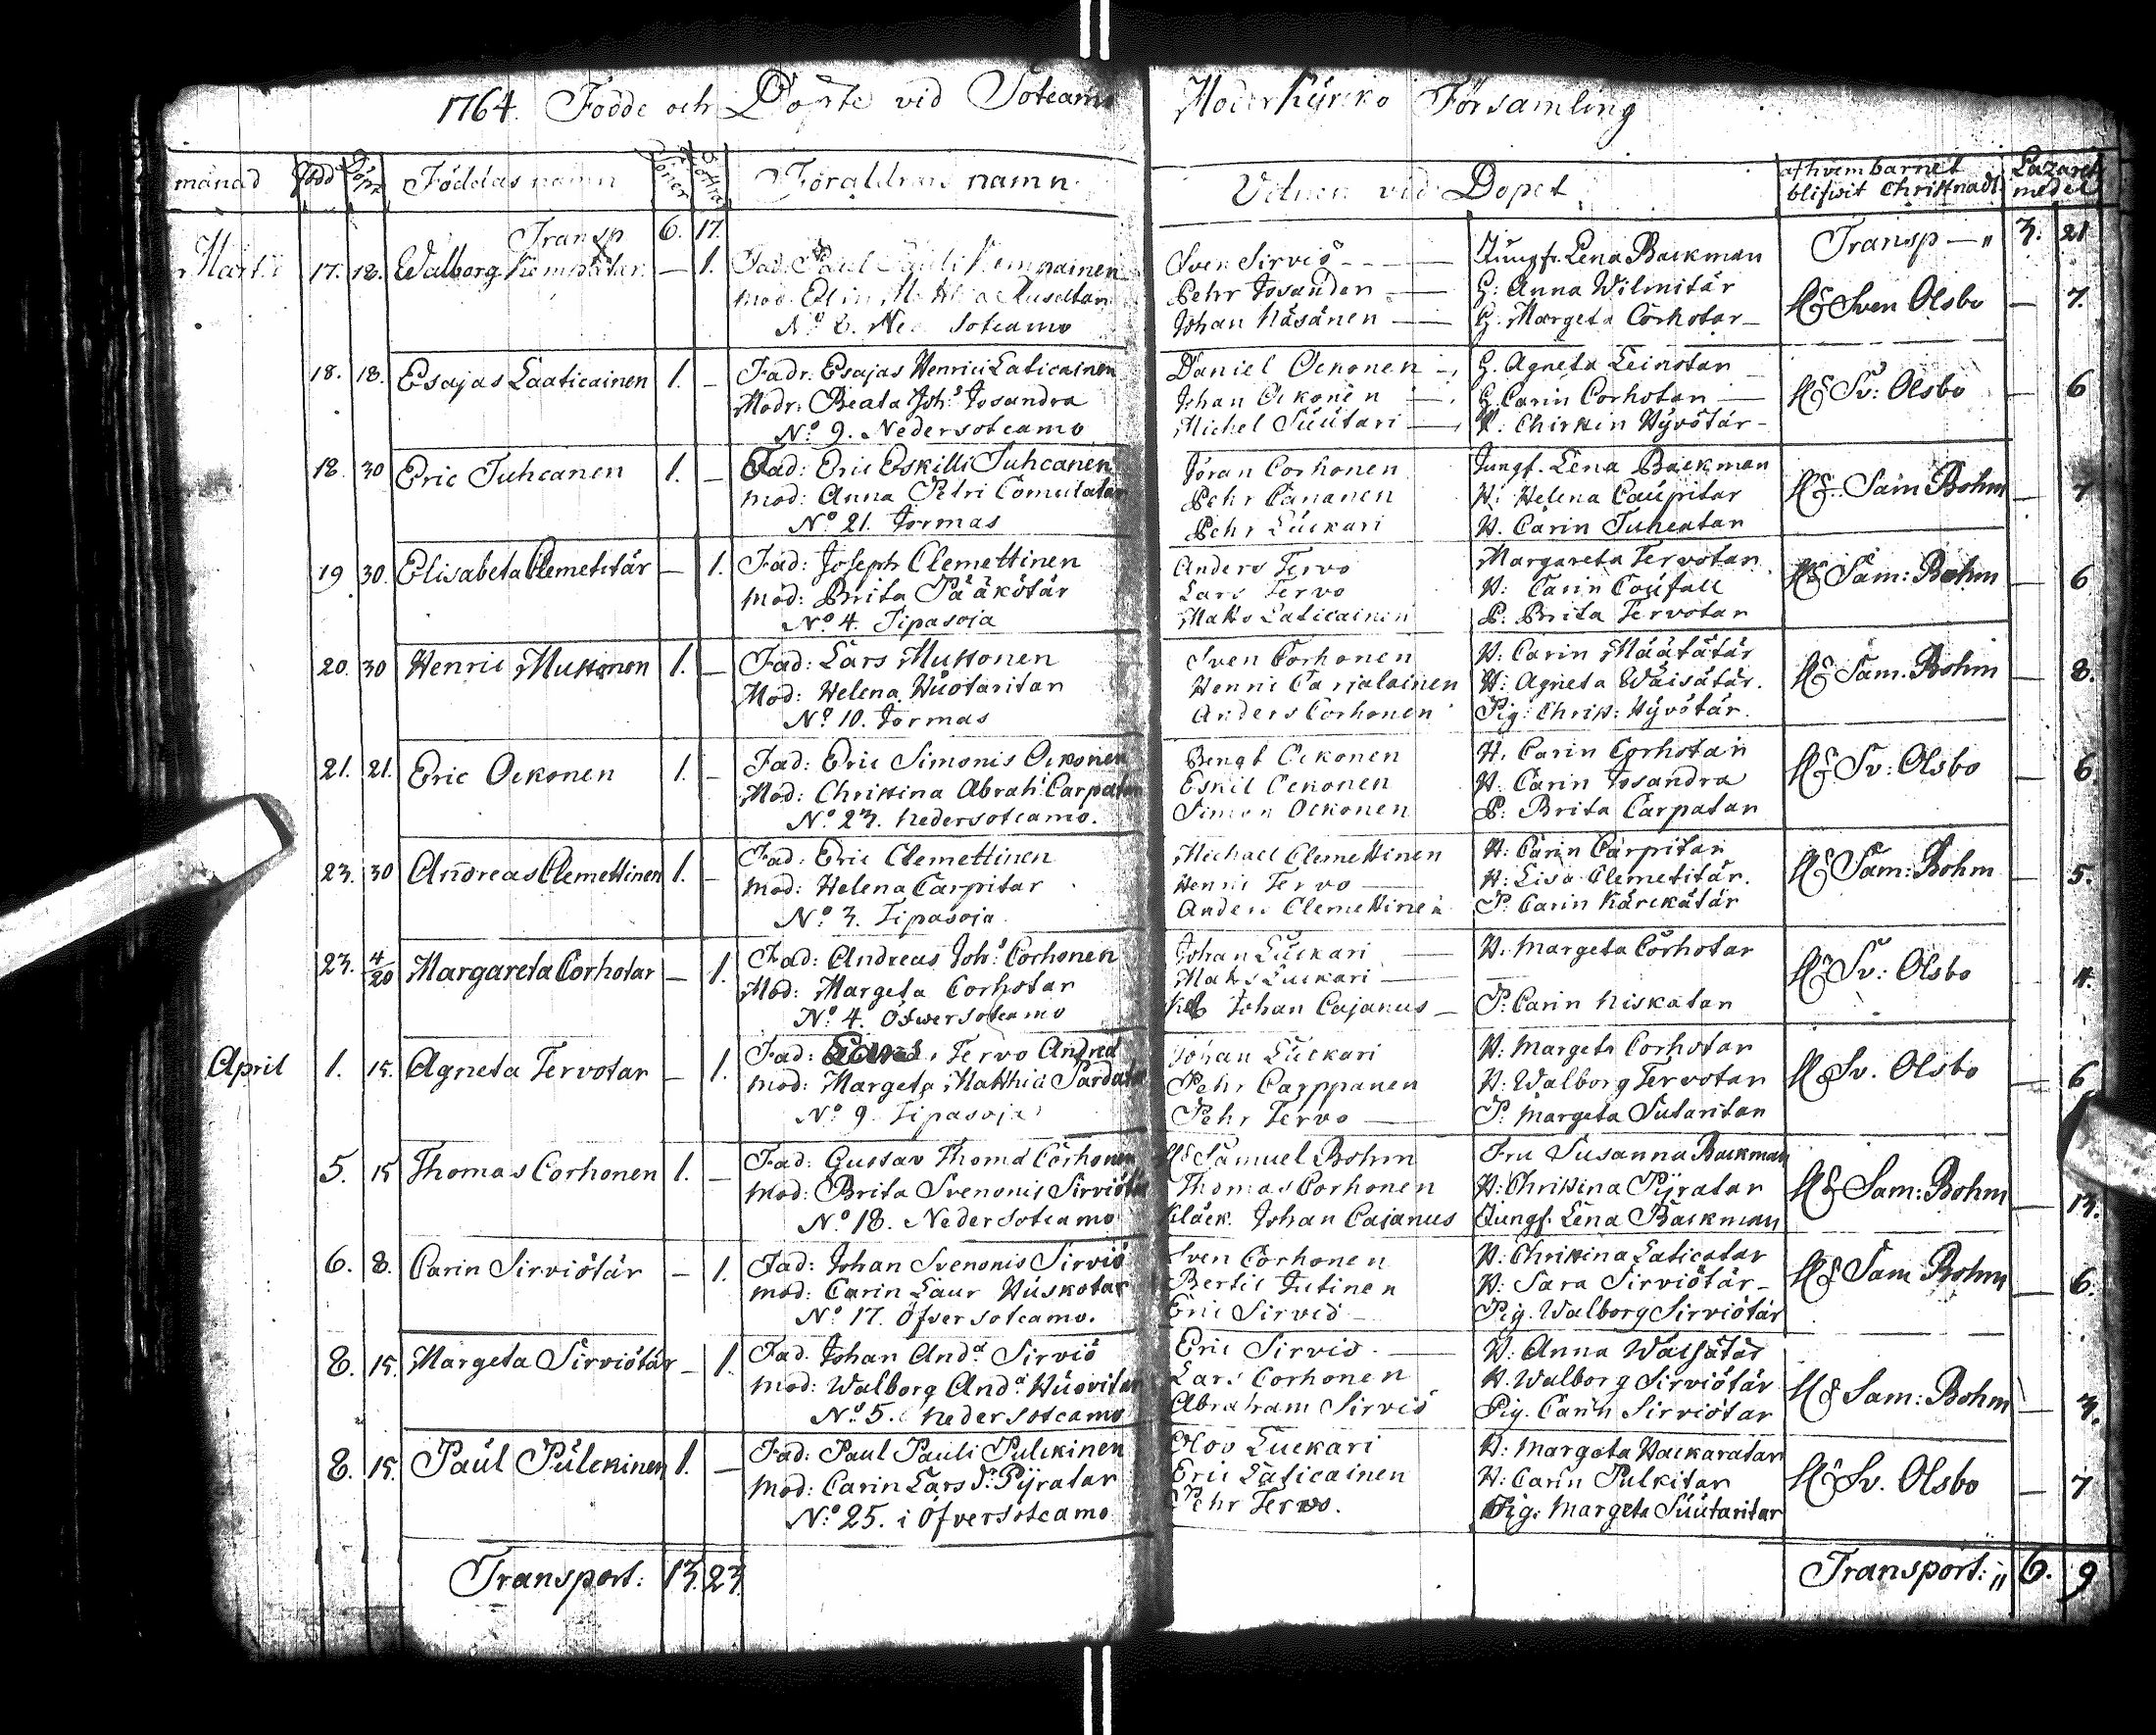 1764. Födde och Döpte vid Sotcamo Moderkyrko Församling
månad Född Döpt Föddas namn Söner Döttrar Föräldrars namn
Transp 6. 17.
Martii 17. 18. Walborg Kempätar — 1. Fad: Paul Pauli Kempainen
Mod:
Nº 2. Sotcamo
18. 18. Esajas Laaticainen 1. — Fadr: Esajas Henrici Laticainen
Modr: Beata Johs Josandra
Nº 9. Nedersotcamo
18. 30 Eric Juhcanen 1. — Fad: Eric Eskilli Juhcanen
mod: Anna Petri Comulatar
Nº 21. Jormas
19 30. Elisabeta Clemetitär — 1. Fad: Joseph Clemettinen
mod: Brita Pääkötär
Nº 4. Tipasoja
20. 30 Henric Mustonen 1. — Fad: Lars Mustonen
Mod: Helena Huotaritar
Nº 10. Jormas
21. 21. Eric Ockonen 1. — Fad: Eric Simonis Ockonen
Mod: Christina Abrah: Carpatar
Nº 23. nedersotcamo.
23. 30 Andreas Clemettinen 1. — Fad: Eric Clemettinen
mod: Helena Carpitar
Nº 3. Tipasoja
23. 4/20 Margareta Corhotar — 1. Fad: Andreas Johs Corhonen
Mod: Margeta Corhotar
Nº 4. Öfwersotcamo
April 1. 15. Agneta Tervotar — 1. Fad: Tervo Andred
mod: Margeta Matthiä Pardatar
Nº 9. Tipasoja
5. 15 Thomas Corhonen 1. — Fad: Gustav Thomä Corhonen
mod: Brita Svenonis Sirviötär
Nº 18. Nedersotcamo
6. 8. Carin Sirviötär — 1. Fad: Johan Svenonis Sirviö
mod: Carin Laur Huskotar
Nº 17. Öfversotcamo.
8. 15. Margeta Sirviötär — 1. Fad. Johan And: Sirviö
mod: Walborg And: Huovitar
Nº 5. nedersotcamo
8. 15. Paul Pulckinen 1. — Fad: Paul Pauli Pulckinen
Mod: Carin Lars Dr Pyratar
Nº 25. i Öfversotcamo
Transport: 13. 23
Vitnen vid Dopet af hvem barnet blifwit Christnadt Lazarets medel
Transp — " 3. 21
Sven Sirviö — Jungf. Lena Backman
Pehr Josanden — H: Anna Wilmitär Hr Sven Olsbo — 7.
Johan Näsänen — H: Margeta Corhotar —
Daniel Ockonen — H. Agneta Leinotar —
Johan Ockonen — H. Carin Corhotar — Hr Sv: Olsbo — 6
Michel Suutari — H: Christin Hyvötär —
Jöran Corhonen Jungf. Lena Backman
Pehr Cananen H: Helena Caupitar Hr Sam Bohm — 7
Pehr Luckari H. Carin Juhcatar
Anders Tervo Margareta Tervotar
Lars Tervo H: Carin Hr Sam: Bohm — 6
Matts Laticainen P. Brita Tervotar
Sven Corhonen H: Carin Määtätär
Henric Carjalainen H: Agneta Wäisätär. Hr Sam. Bohm — 8.
Anders Corhonen Pig: Christ: Hyvötär.
Bengt Ockonen H. Carin Corhotar
Eskil Ockonen H. Carin Josandra Hr Sv: Olsbo — 6
Simon Ockonen P: Brita Carpatar
Michael Clemettinen H: Carin Carpitar
Henric Tervo — H: Lisa Clemetitär. Hr Sam: Bohm — 5.
Anders Clemettinen P. Carin Kärckätär
Johan Luckari — H. Margeta Corhotar
Matts Luckari — — Hr Sv: Olsbo 4.
Johan Cajanus — P. Carin Niskatar
Johan Luckari H: Margeta Corhotar
Pehr Carppanen H: Walborg Tervotar Hr Sv. Olsbo — 6
Pehr Tervo — P: Margeta Sutaritar
Hr Samuel Bohm Fru Susanna Backman
Thomas Corhonen H: Christina Pyratar Hr Sam: Bohm — 13.
Klåck. Johan Cajanus Jungf. Lena Backman
Sven Corhonen H: Christina Laticatar
Bertil Jutinen H: Sara Sirviötär — Hr Sam Bohm — 6.
Eric Sirviö — Pig. Walborg Sirviötär
Eric Sirviö. — H: Anna Wäisätär
Lars Corhonen H. Walborg Sirviötär Hr Sam: Bohm — 3.
Abraham Sirviö Pig. Carin Sirviötar
Olov Luckari H: Margeta Hackaratar
Eric Laticainen H: Carin Pulkitar Hr Sv. Olsbo — 7
Pehr Tervo. Pig: Margeta Suutaritar
Transport: " 6. 9